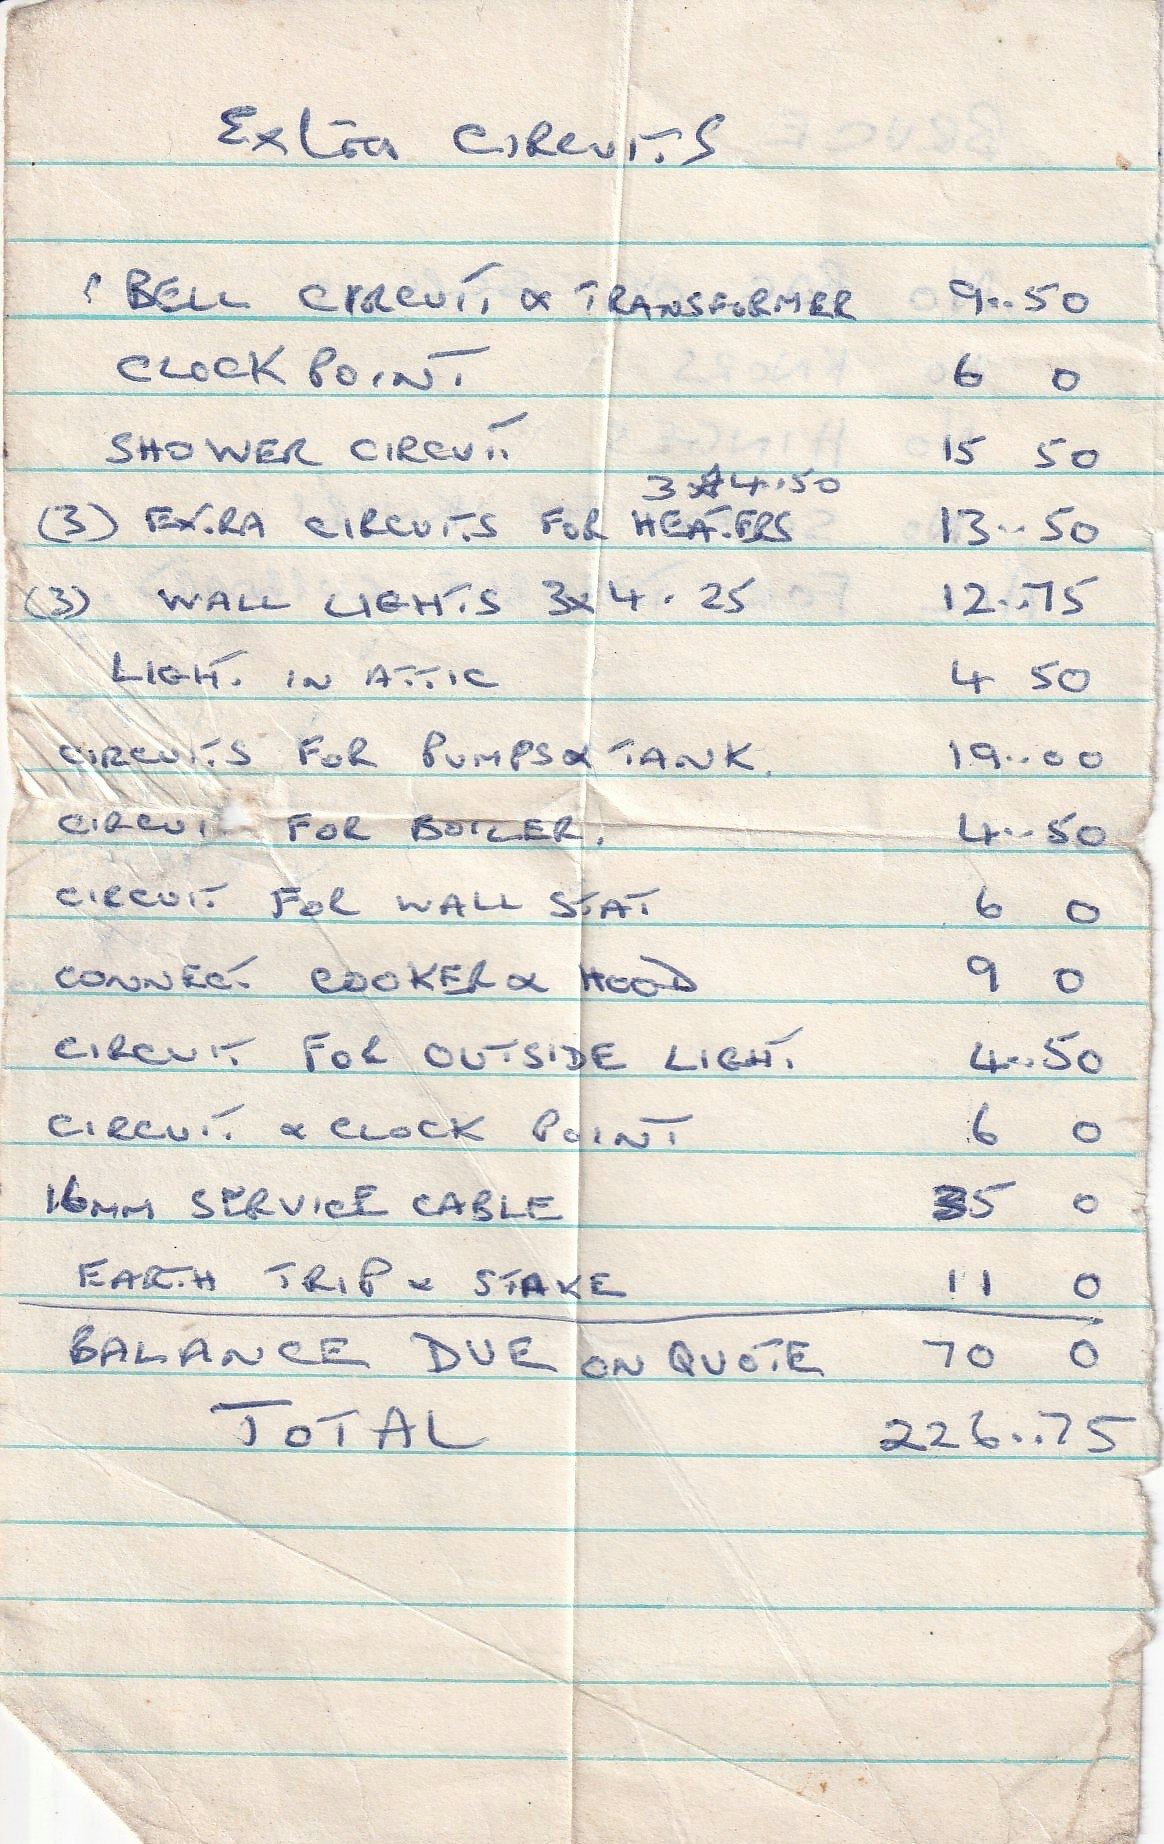 Extra CIRCUITS
1 BELL CIRCUIT & TRANSFORMER 9..50
CLOCK POINT 6 0
SHOWER CIRCUIT 15 50
3x4.50
(3) EXTRA CIRCUITS FOR HEATERS 13..50
(3) WALL LIGHTS 3x4.25 12..75
LIGHT IN ATTIC 4 50
CIRCUITS FOR PUMPS & TANK. 19..00
CIRCUIT FOR BOILER. 4..50
CIRCUIT FOR WALL STAT 6 0
CONNECT COOKER & HOOD 9 0
CIRCUIT FOR OUTSIDE LIGHT 4..50
CIRCUIT & CLOCK POINT 6 0
16MM SERVICE CABLE 35 0
EARTH TRIP & STAKE 11 0
BALANCE DUE ON QUOTE 70 0
TOTAL 226..75